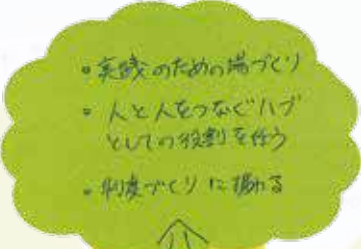 • 実践のための場づくり
• 人と人をつなぐハブ
としての役割を担う
• 制度づくりに携わる